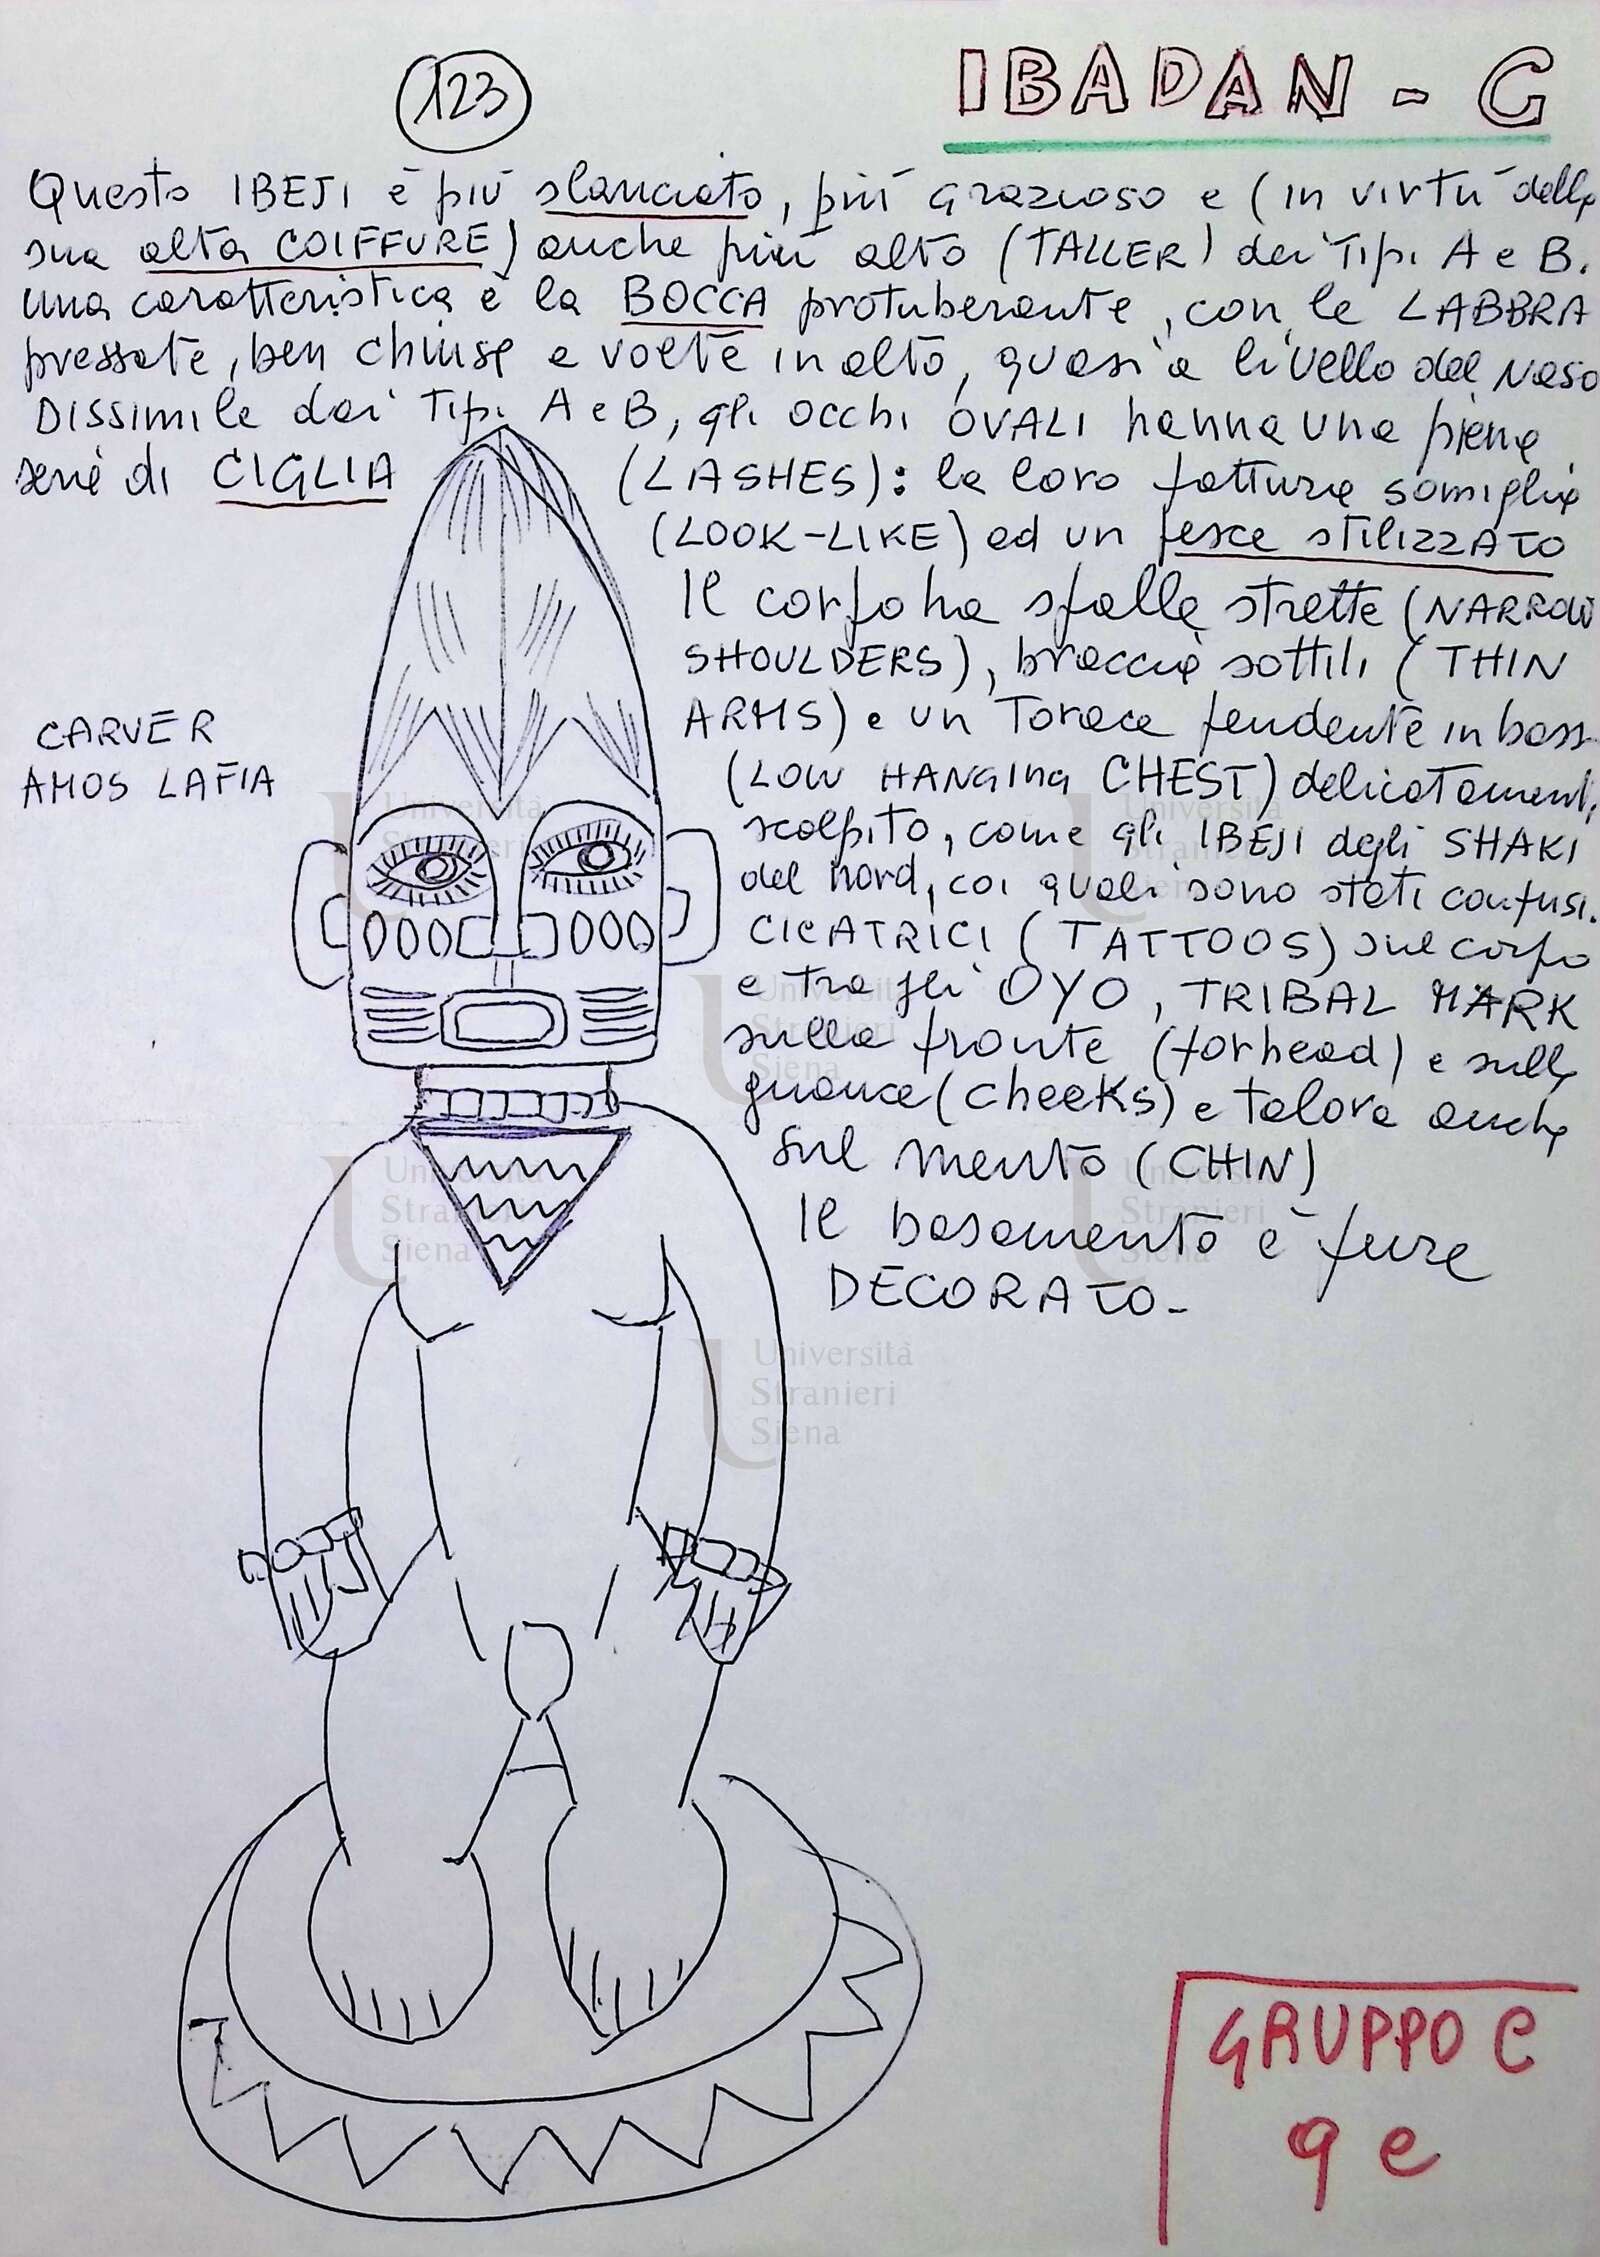 123
IBADAN - C
Questo IBEJI è più slanciato, più grazioso e (in virtù della
sua alta COIFFURE) anche più alto (TALLER) dei Tipi A e B.
una caratteristica è la BOCCA protuberante, con le LABBRA
pressate, ben chiuse e volte in alto, quasi a livello del naso
DISSIMILE dai Tipi A e B, gli occhi OVALI hanno una piena
serie di CIGLIA (LASHES): la loro fattura somiglia
(LOOK-LIKE) ad un pesce stilizzato
Il corpo ha spalle strette (NARROW
SHOULDERS), braccia sottili (THIN
ARMS) e un Torace pendente in basso
(LOW HANGING CHEST) delicatamente
scolpito, come gli IBEJI degli SHAKI
del nord, coi quali sono stati confusi.
CICATRICI (TATTOOS) sul corpo
e tra gli OYO, TRIBAL MARK
sulla fronte (forhead) e sulle
guance (cheeks) e talora anche
sul mento (CHIN)
Il basamento è pure
DECORATO-
CARVER
AMOS LAFIA
Università
Stranieri
Siena
GRUPPO C
9 e